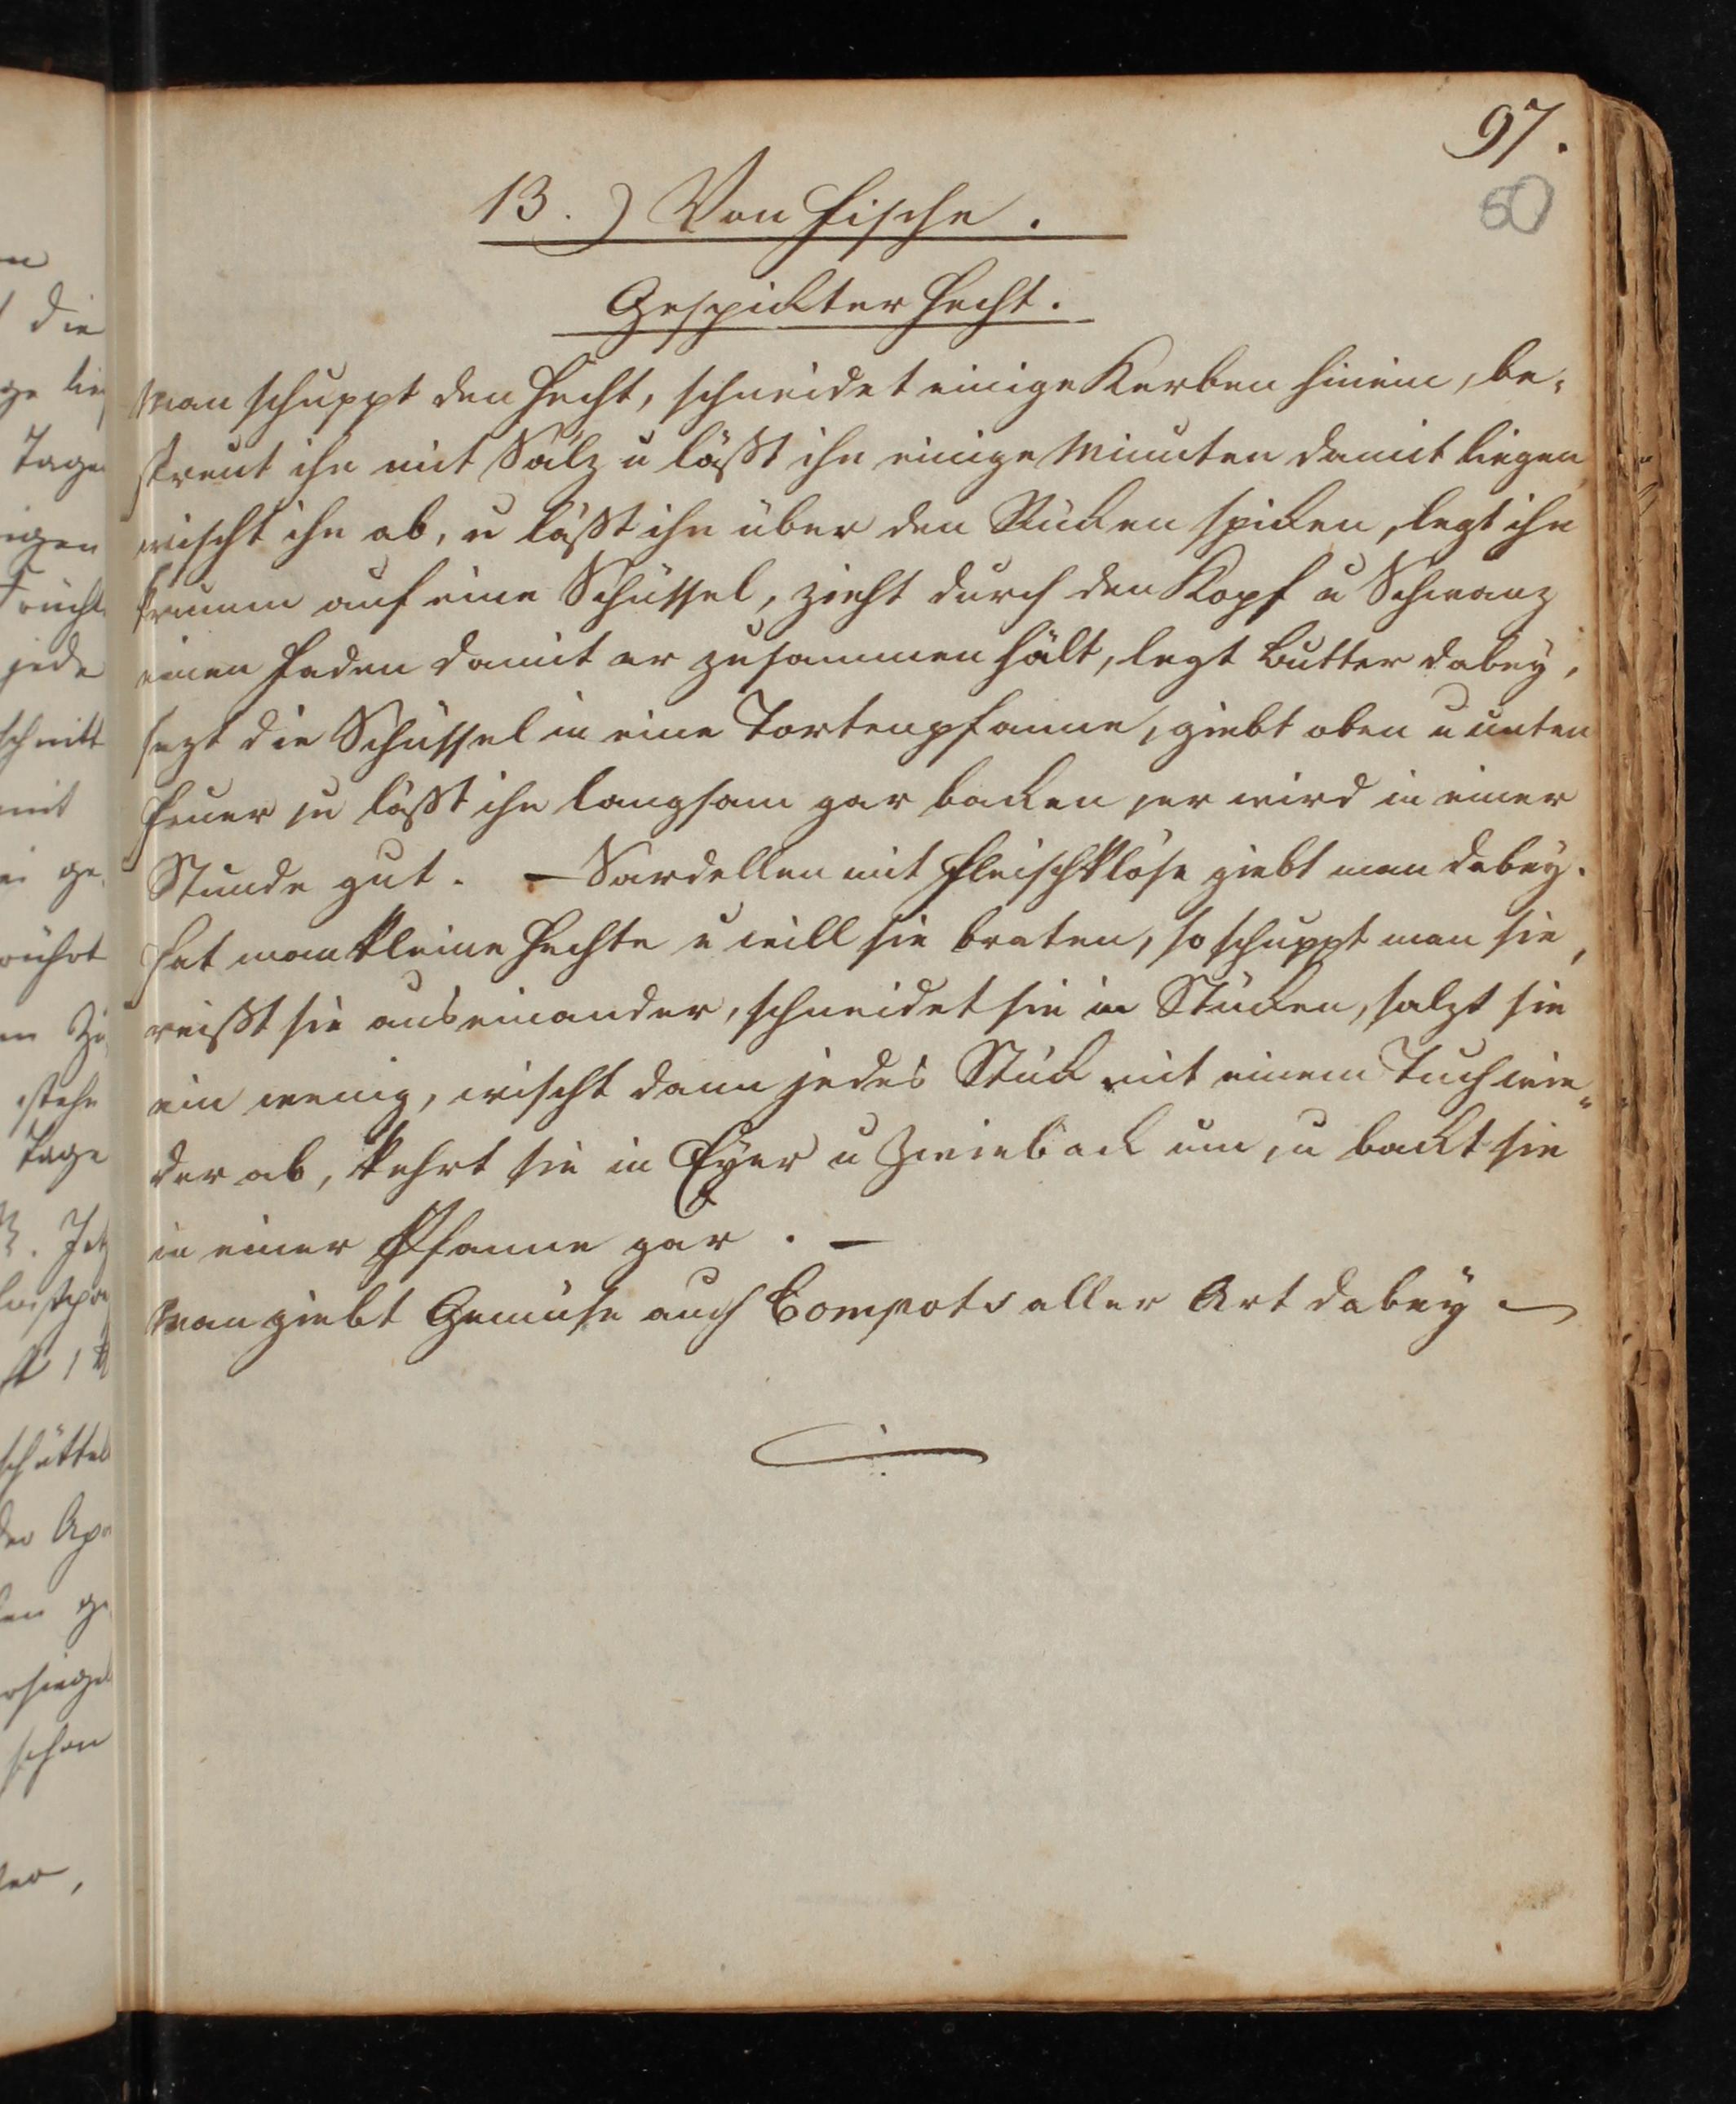 97.
50
13.) Von Fische.
Gespickter Hecht.
Man schuppt den Hecht, schneidet einige Kerben hinein, be-
streut ihn mit Salz u läßt ihn einige Minuten damit liegen
wischt ihn ab, u läßt ihn über den Rücken spicken, legt ihn
krumm auf eine Schüssel, zieht durch den Kopf u Schwanz
einen Faden damit er zusammen hält, legt Butter dabey,
sezt die Schüssel in eine Tortenpfanne, giebt oben u unten
Feuer u läßt ihn langsam gar backen, er wird in einer
Stunde gut. – Sardellen mit Fleischklöse giebt man dabey.
Hat man kleine Hechte u will sie braten, so schuppt man sie,
reißt sie auseinander, schneidet sie in Stücken, salzt sie
ein wenig, wischt dann jedes Stück mit einem Tuch wie-
der ab, kehrt sie in Eyer u Zwieback um, u backt sie
in einer Pfanne gar. –
Man giebt Gemüse auch Compots aller Art dabey –
die
Tage
jede
schnitt
mit
ge-
rührt
stehe
Tage
schüttel
der
schon